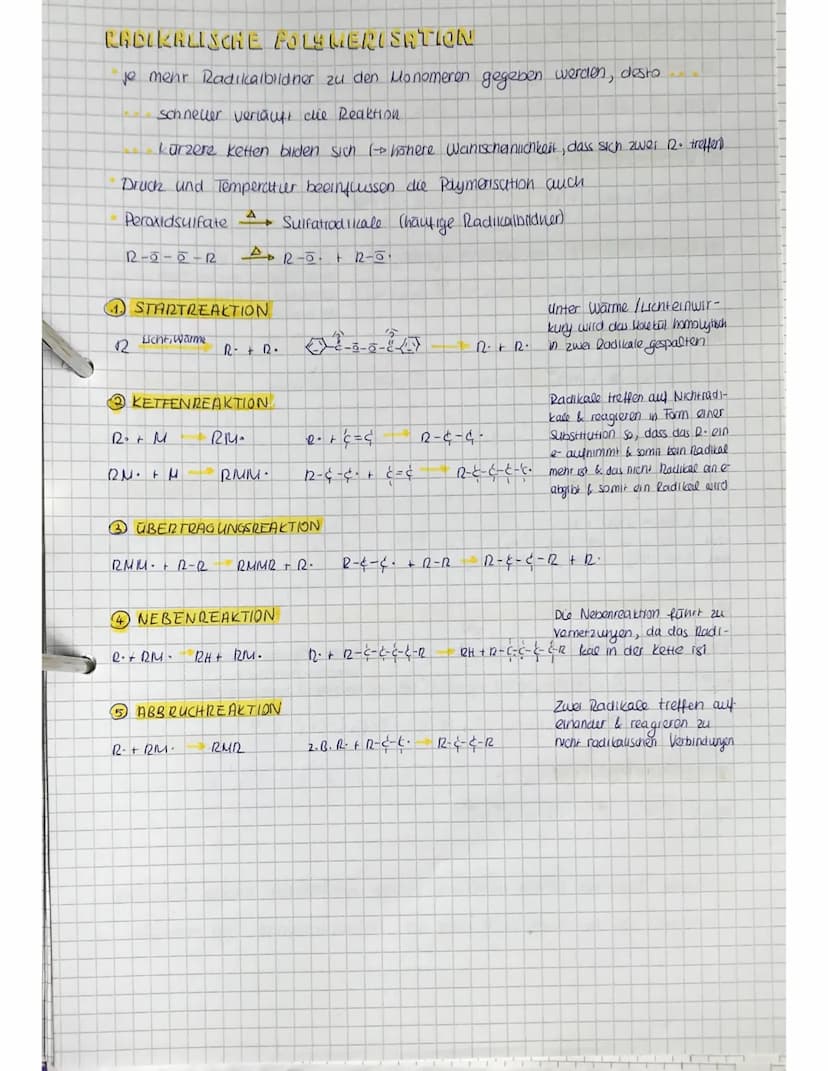 RADIKALISCHE POLYMERISATION
• je mehr Radikalbildner zu den Monomeren gegeben werden, desto ...
... schneller verläuft die Reaktion
... kürzere Ketten bilden sich (→ höhere Wahrscheinlichkeit, dass sich zwei R• treffen)
• Druck und Temperatur beeinflussen die Polymerisation auch
• Peroxidsulfate Δ→ Sulfatradikale (häufige Radikalbildner)
R-O-O-R Δ→ R-O• + R-O•
1. STARTREAKTION
R Licht, Wärme → R• + R•
→ R• + R•
Unter Wärme / Lichteinwir-
kung wird das Molekül homolytisch
in zwei Radikale gespalten
2 KETTENREAKTION
R• + M → RM•
R• + C=C → R-C-C•
RM• + M → RMM•
R-C-C• + C=C → R-C-C-C-C•
Radikale treffen auf Nichtradi-
kale & reagieren in Form einer
Substitution so, dass das R• ein
e- aufnimmt & somit kein Radikal
mehr ist & das nicht Radikal an e-
abgibt & somit ein Radikal wird
3 ÜBERTRAGUNGSREAKTION
RMM• + R-R → RMMR + R•
R-C-C• + R-R → R-C-C-R + R•
4 NEBENREAKTION
R• + RM• → RH + RM•
R• + R-C-C-C-C-R → RH + R-C-C-C-C-R
Die Nebenreaktion führt zu
Vernetzungen, da das Radi-
kal in der Kette ist
5 ABBRUCHREAKTION
R• + RM• → RMR
z.B. R• + R-C-C• → R-C-C-R
Zwei Radikale treffen auf
einander & reagieren zu
nicht radikalischen Verbindungen